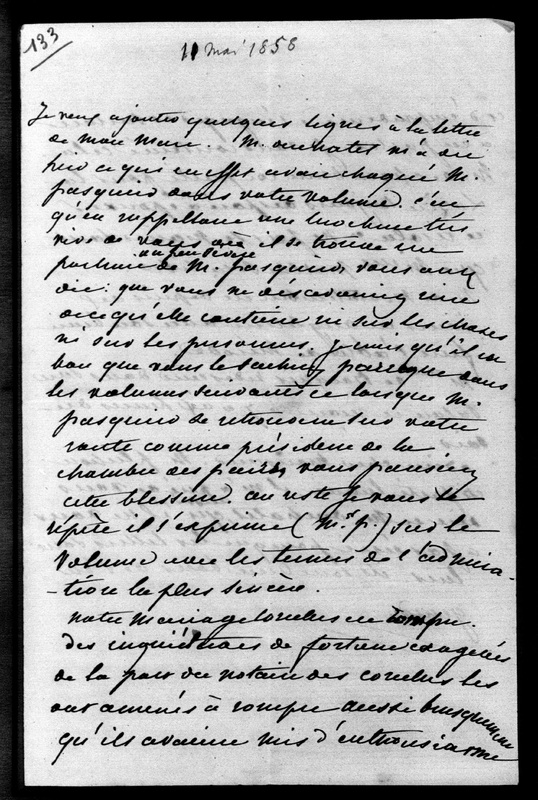 133
11 mai 1858
Je veux ajouter quelques lignes à la lettre
de mon mari. M. m'a dit
hier ce qui en effet avait choqué M.
pasquier dans votre volume. c'est
qu'en rappellant une brochure très
vive de vous où il se trouve une
un peu sévère
de M. pasquier, vous avez
dit: que vous ne désavouiez rien
de ce qu'elle contient ni sur les choses
ni sur les personnes. je crois qu'il est
bon que vous le sachiez parceque dans
les volumes suivants et lorsque M.
pasquier se retrouvera sur votre
route comme président de la
chambre des pairs, vous pansiez
cette blessure. au reste je vous le
répète il s'exprime (Mr. p.) sur le
volume avec les termes de l'admira-
-tion la plus sincère.
notre mariage Cornelis est rompu.
des inquiétudes de fortune exagérées
de la part du notaire des Cornelis les
ont amenés à rompre aussi brusquement
qu'ils avaient mis d'enthousiasme